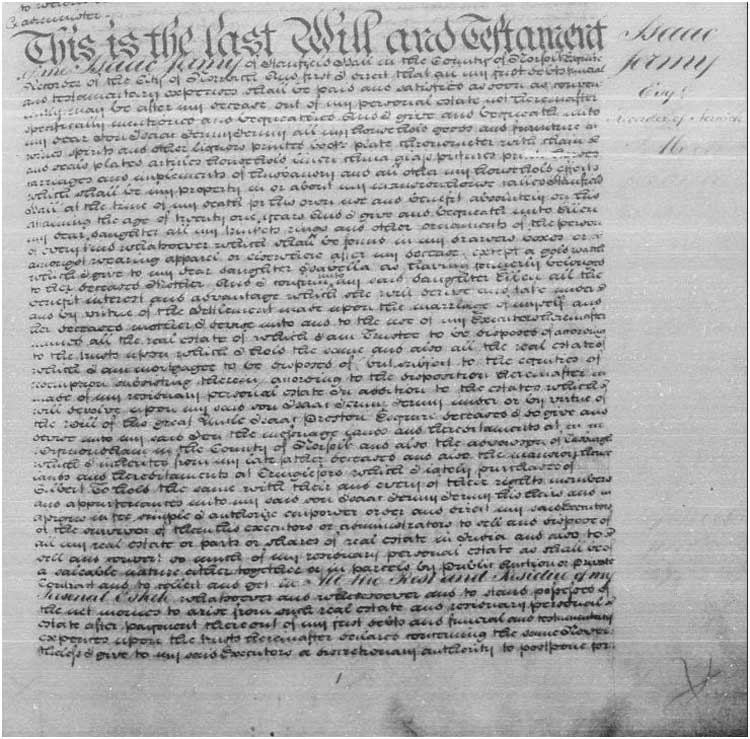 to
administer.
This is the last Will and Testament
Of me Isaac Jermy of Stanfield Hall in the County of Norfolk Esquire
Recorder of the City of Norwich And first I direct that all my just debts funeral
and testamentary expences shall be paid and satisfied as soon as conven
iently may be after my decease out of my personal estate not hereinafter
specifically mentioned and bequeathed And I give and bequeath unto
my dear Son Isaac Jermy Jermy all my household goods and furniture
wines spirits and other liquors printed books plate chronometer with chain &
and seals plated articles household linen china glass pictures prints horses
carriages and implements of husbandry and all other my household effects
which shall be my property in or about my mansionhouse called Stanfield
Hall at the time of my death for his own use and benefit absolutely on his
attaining the age of twenty one years And I give and bequeath unto Ellen
my dear daughter all my trinkets rings and other ornaments of the person
of every kind whatsoever which shall be found in my drawers boxes or
amongst wearing apparel or elsewhere after my decease except a gold watch
which I give to my dear daughter Isabella as having formerly belonged
to her deceased Mother And I confirm unto my said daughter Ellen all the
benefit interest and advantage which she will derive and take under
and by virtue of the Settlement made upon the marriage of myself and
her deceased mother I devise unto and to the use of my Executors hereinafter
named all the real estate of which I am Trustee to be disposed of according
to the trusts upon which I hold the same and also all the real estate of
which I am mortgagee to be disposed of but subject to the equities of
redemption subsisting therein according to the disposition hereinafter
made of my residuary personal estate In addition to the estates which
will devolve upon my said son Isaac Jermy Jermy under or by virtue of
the Will of his great Uncle Isaac Preston Esquire deceased I do give and
devise unto my said Son the messuage lands and hereditaments at
Wymondham in the County of Norfolk and also the advowson of
which I inherited from my late father deceased and also the
lands and hereditaments at which I lately purchased of
Gilbert To hold the same with their and every of their rights members
and appurtenances unto my said son Isaac Jermy Jermy his heirs and
assigns in fee simple I authorize empower order and direct my said Executors
or the survivor of them his executors or administrators to sell and dispose of
all my real estate or parts or shares of real estate in India and also to
sell and convert so much of my residuary personal estate as shall be of
a saleable nature either together or in parcels by public Auction or private
Contract and to collect and get in All the Rest and Residue of my
Personal Estate whatsoever and wheresoever and to stand possessed of
the net monies to arise from such real estate and residuary personal
estate after payment thereout of my just debts and funeral and testamentary
expences upon the trusts hereinafter declared concerning the same Never
theless I give to my said Executors a discretionary authority to postpone for
Isaac
Jermy
Esqr.